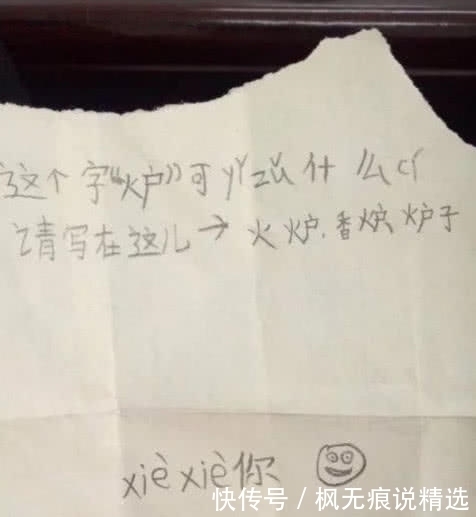 这个字“炉”可yǐzǔ什么cí
请写在这儿→火炉.香炉、炉子
xiè xiè你
快传号/枫无痕说精选